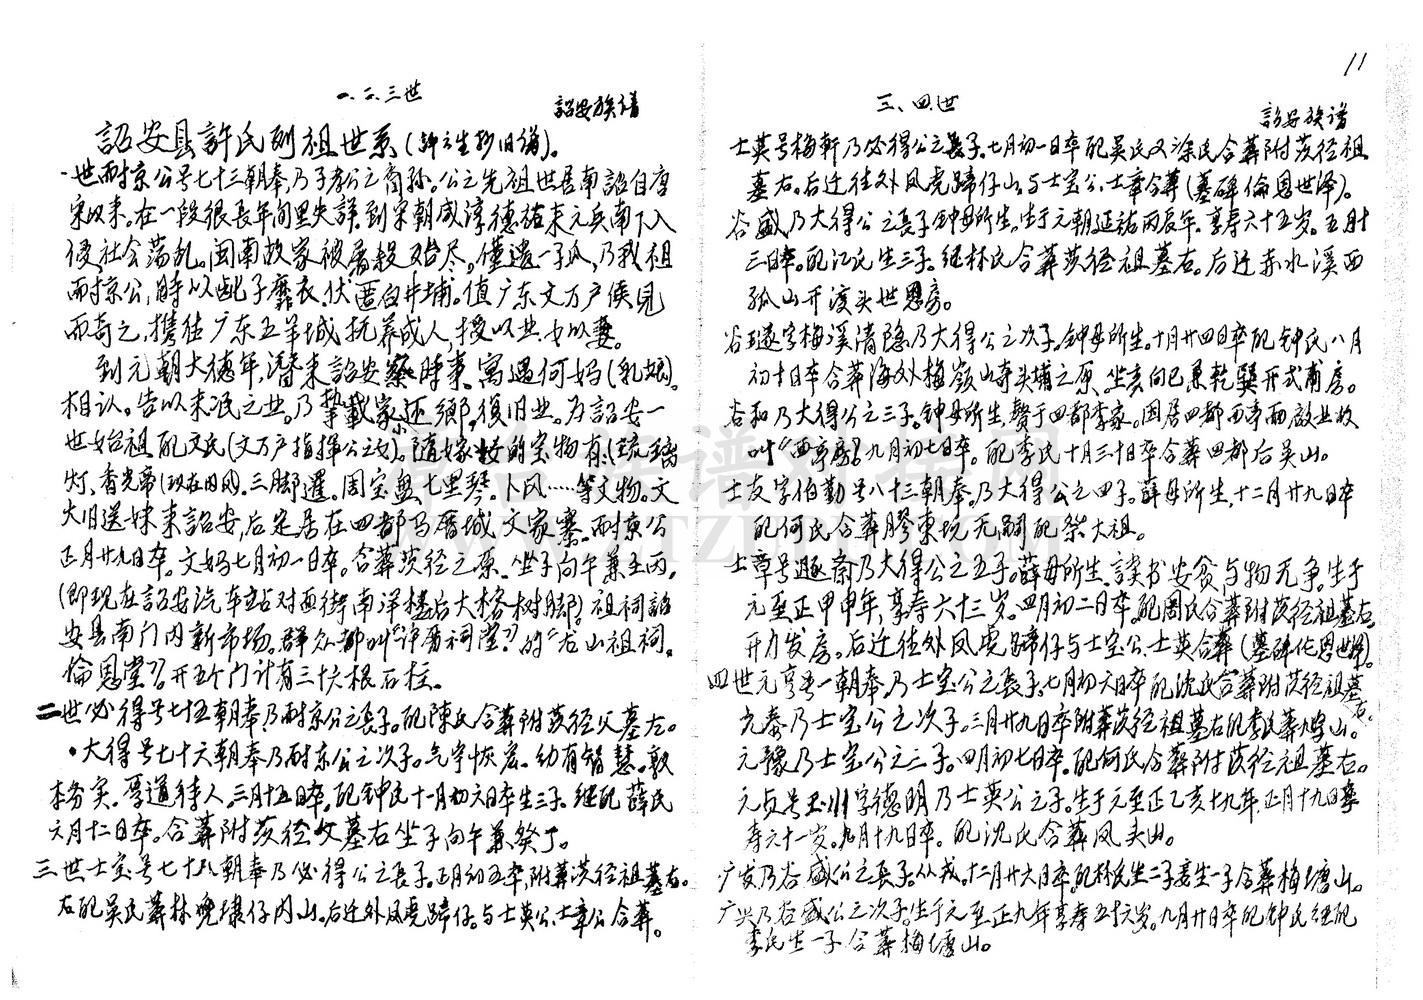 一.二.三世
詔安族譜
詔安县許氏列祖世系(钟之生抄旧谱)。
一世耐京公号七十三朝奉,乃子孝公之裔孙。公之先祖世居南詔自唐
宋以来。在一段很長年间里失詳。到宋朝咸淳德祐末元兵南下入
侵,社会荡乱。闽南故家被屠殺殆尽,僅遗一孤,乃我祖
耐京公,時以龀子靡衣,伏匿白井埔。值广东文万户侯見
而奇之,携往广东五羊城抚养成人,授以业,女以妻。
到元朝大德年,潛来詔安察時事,寓遇何妈(乳娘)。
相认。告以未冺之业。乃挚載家还鄉,復旧业。为詔安一
世始祖配文氏(文万户指挥公之女)。随嫁妝的宝物有:琉璃
灯、香光帶(现在旧风).三脚暹。周宝盤,七里琴。卜风……等文物。文
大旧送妹来詔安,后定居在四都马厝城文家寨。耐京公
正月廿九日卒。文妈七月初一日卒。合葬茨径之原。坐子向午兼壬丙,
(即现在詔安汽车站对面街南洋樓后大榕树脚)。祖祠詔
安县南门内新市场。群众都叫“许厝祠堂”的“龙山祖祠。
倫恩堂”开五个门计有三十六根石柱。
二世必得号七十五朝奉乃耐京公之長子。配陳氏合葬附茨径父墓左。
·大得号七十六朝奉乃耐京公之次子。气宇恢宏。幼有智慧。敦
本务实。厚道待人。三月十五日卒。配钟氏十一月初六日卒生三子。继配薛氏
六月十二日卒。合葬附茨径父墓右坐子向午兼癸丁。
三世士宝号七十八朝奉乃必得公之長子。正月初五卒,附葬茨径祖墓右。
右配吴氏葬林婉壤仔内山。后迁外凤虎蹄仔。与士英公.士章公合葬。
11
三、四.世
詔安族谱
士英号梅軒乃必得公之長子.七月初一日卒配吴氏又涂氏合葬附茨径祖
墓右。后迁往外凤虎蹄仔山,与士宝公.士章合葬(墓碑倫恩世泽)。
谷盛乃大得公之長子钟母所生。生于元朝延祐丙辰年。享寿六十五岁。五月廿
三日卒。配江氏生三子。继林氏合葬茨径祖墓右。后迁赤水溪西
孤山开渡头世恩房。
谷璲字梅溪清隐乃大得公之次子。钟母所生。十月廿四日卒配钟氏八月
初十日卒合葬海外梅嶺山寺头埔之原坐亥向巳兼乾巽开式甫房。
谷和乃大得公之三子。钟母所生,赘于四都李家。因居四都西亭而啟业故
叫“西亭房”。九月初七日卒。配李氏十月三十日卒合葬四都后吴山。
士友字伯勤号八十三朝奉。乃大得公之四子。薛母所生,十二月廿九日卒
配何氏合葬膠東坑无嗣配祭大祖。
士章号遯斋乃大得公之五子。薛母所生。读书安贫与物无争。生于
元至正甲申年,享寿六十三岁。四月初二日卒。配周氏合葬附茨径祖墓左。
开力发房。后迁往外凤虎蹄仔与士宝公.士英合葬(墓碑伦恩世泽)。
四世元亨季一朝奉,乃士宝公之長子.七月初六日卒配沈氏合葬附茨径祖墓
左。
元泰乃士宝公之次子。三月廿九日卒附葬茨径祖墓右配李氏葬九曲山。
元豫乃士宝公之三子。四月初七日卒。配何氏合葬附茨径祖墓右。
元贞号玉川字德明乃士英公之子。生于元至正乙亥十九年正月十九日享
寿六十一岁。九月十九日卒。配沈氏合葬凤头山。
广发乃谷盛公之長子。从戎。十二月廿六日卒,配林氏生二子妾生一子合葬梅塘山。
广兴乃谷盛公之次子。生于元至正九年享寿五十六岁。九月廿日卒配钟氏继配
李氏生一子合葬梅塘山。